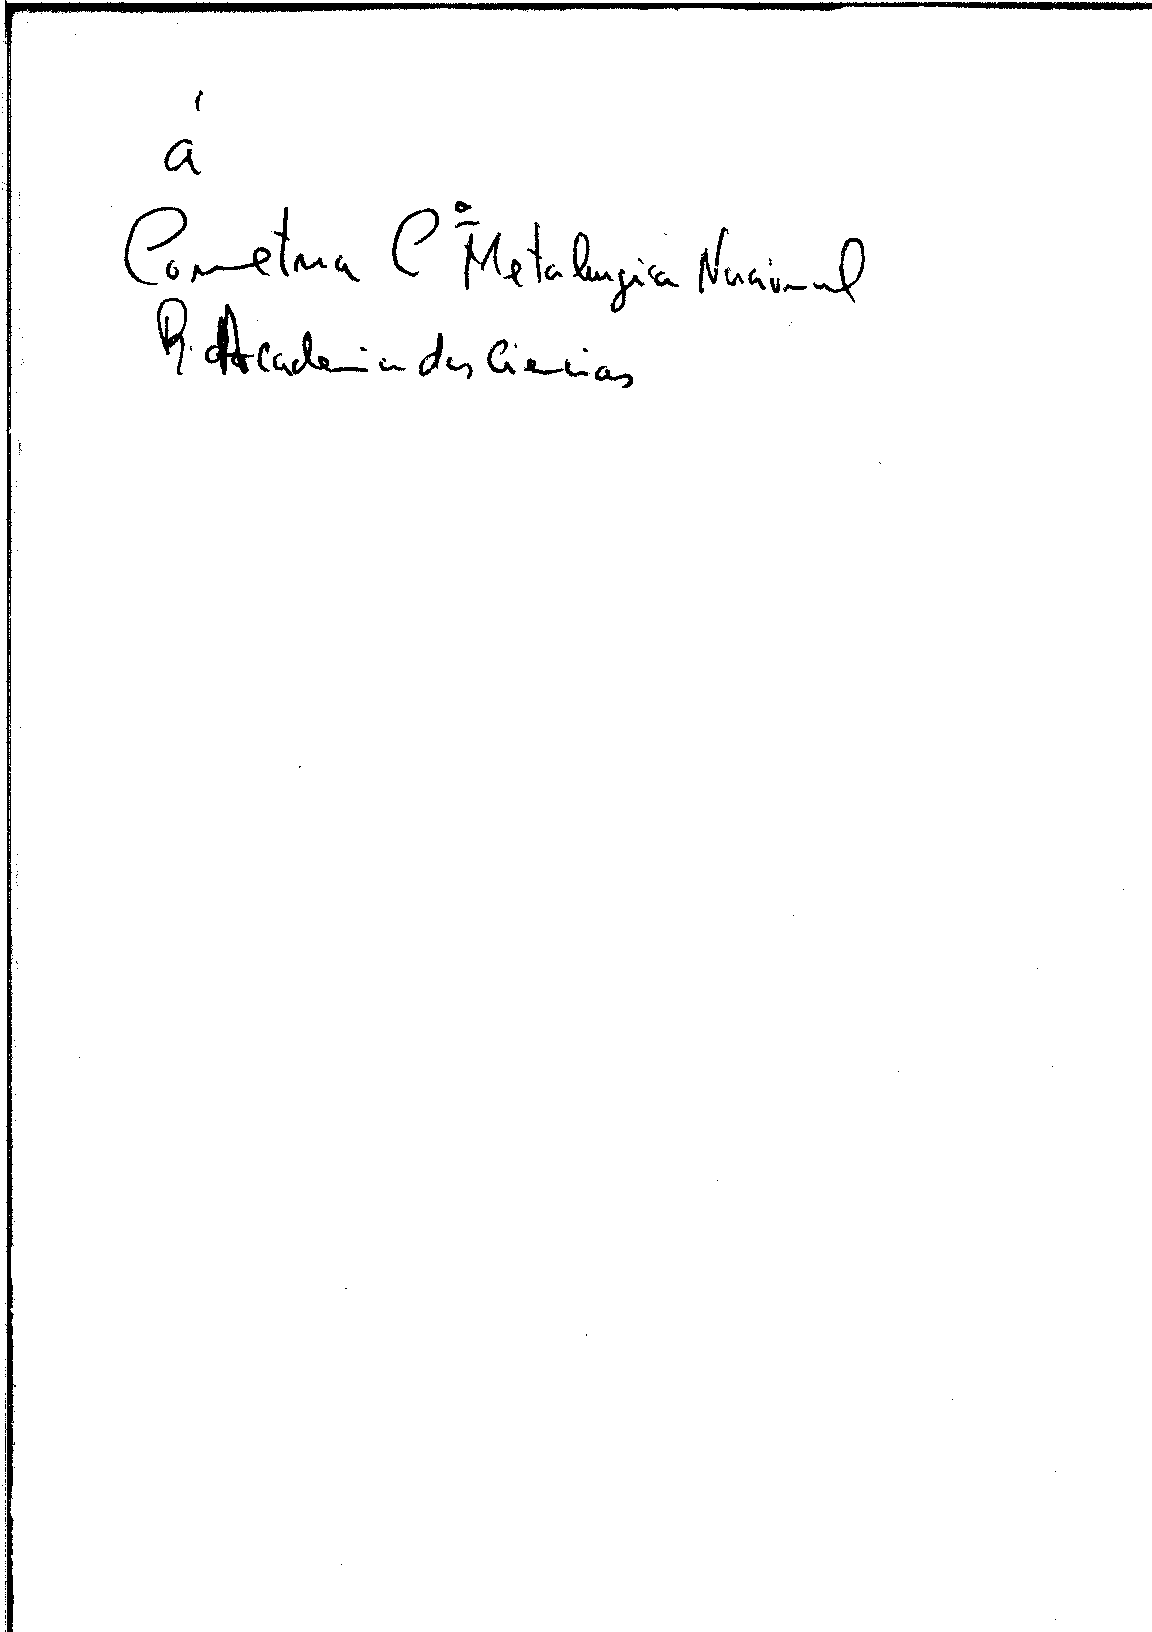 á
Cometna Cª Metalurgica Nacional
R. Academia das Ciencias